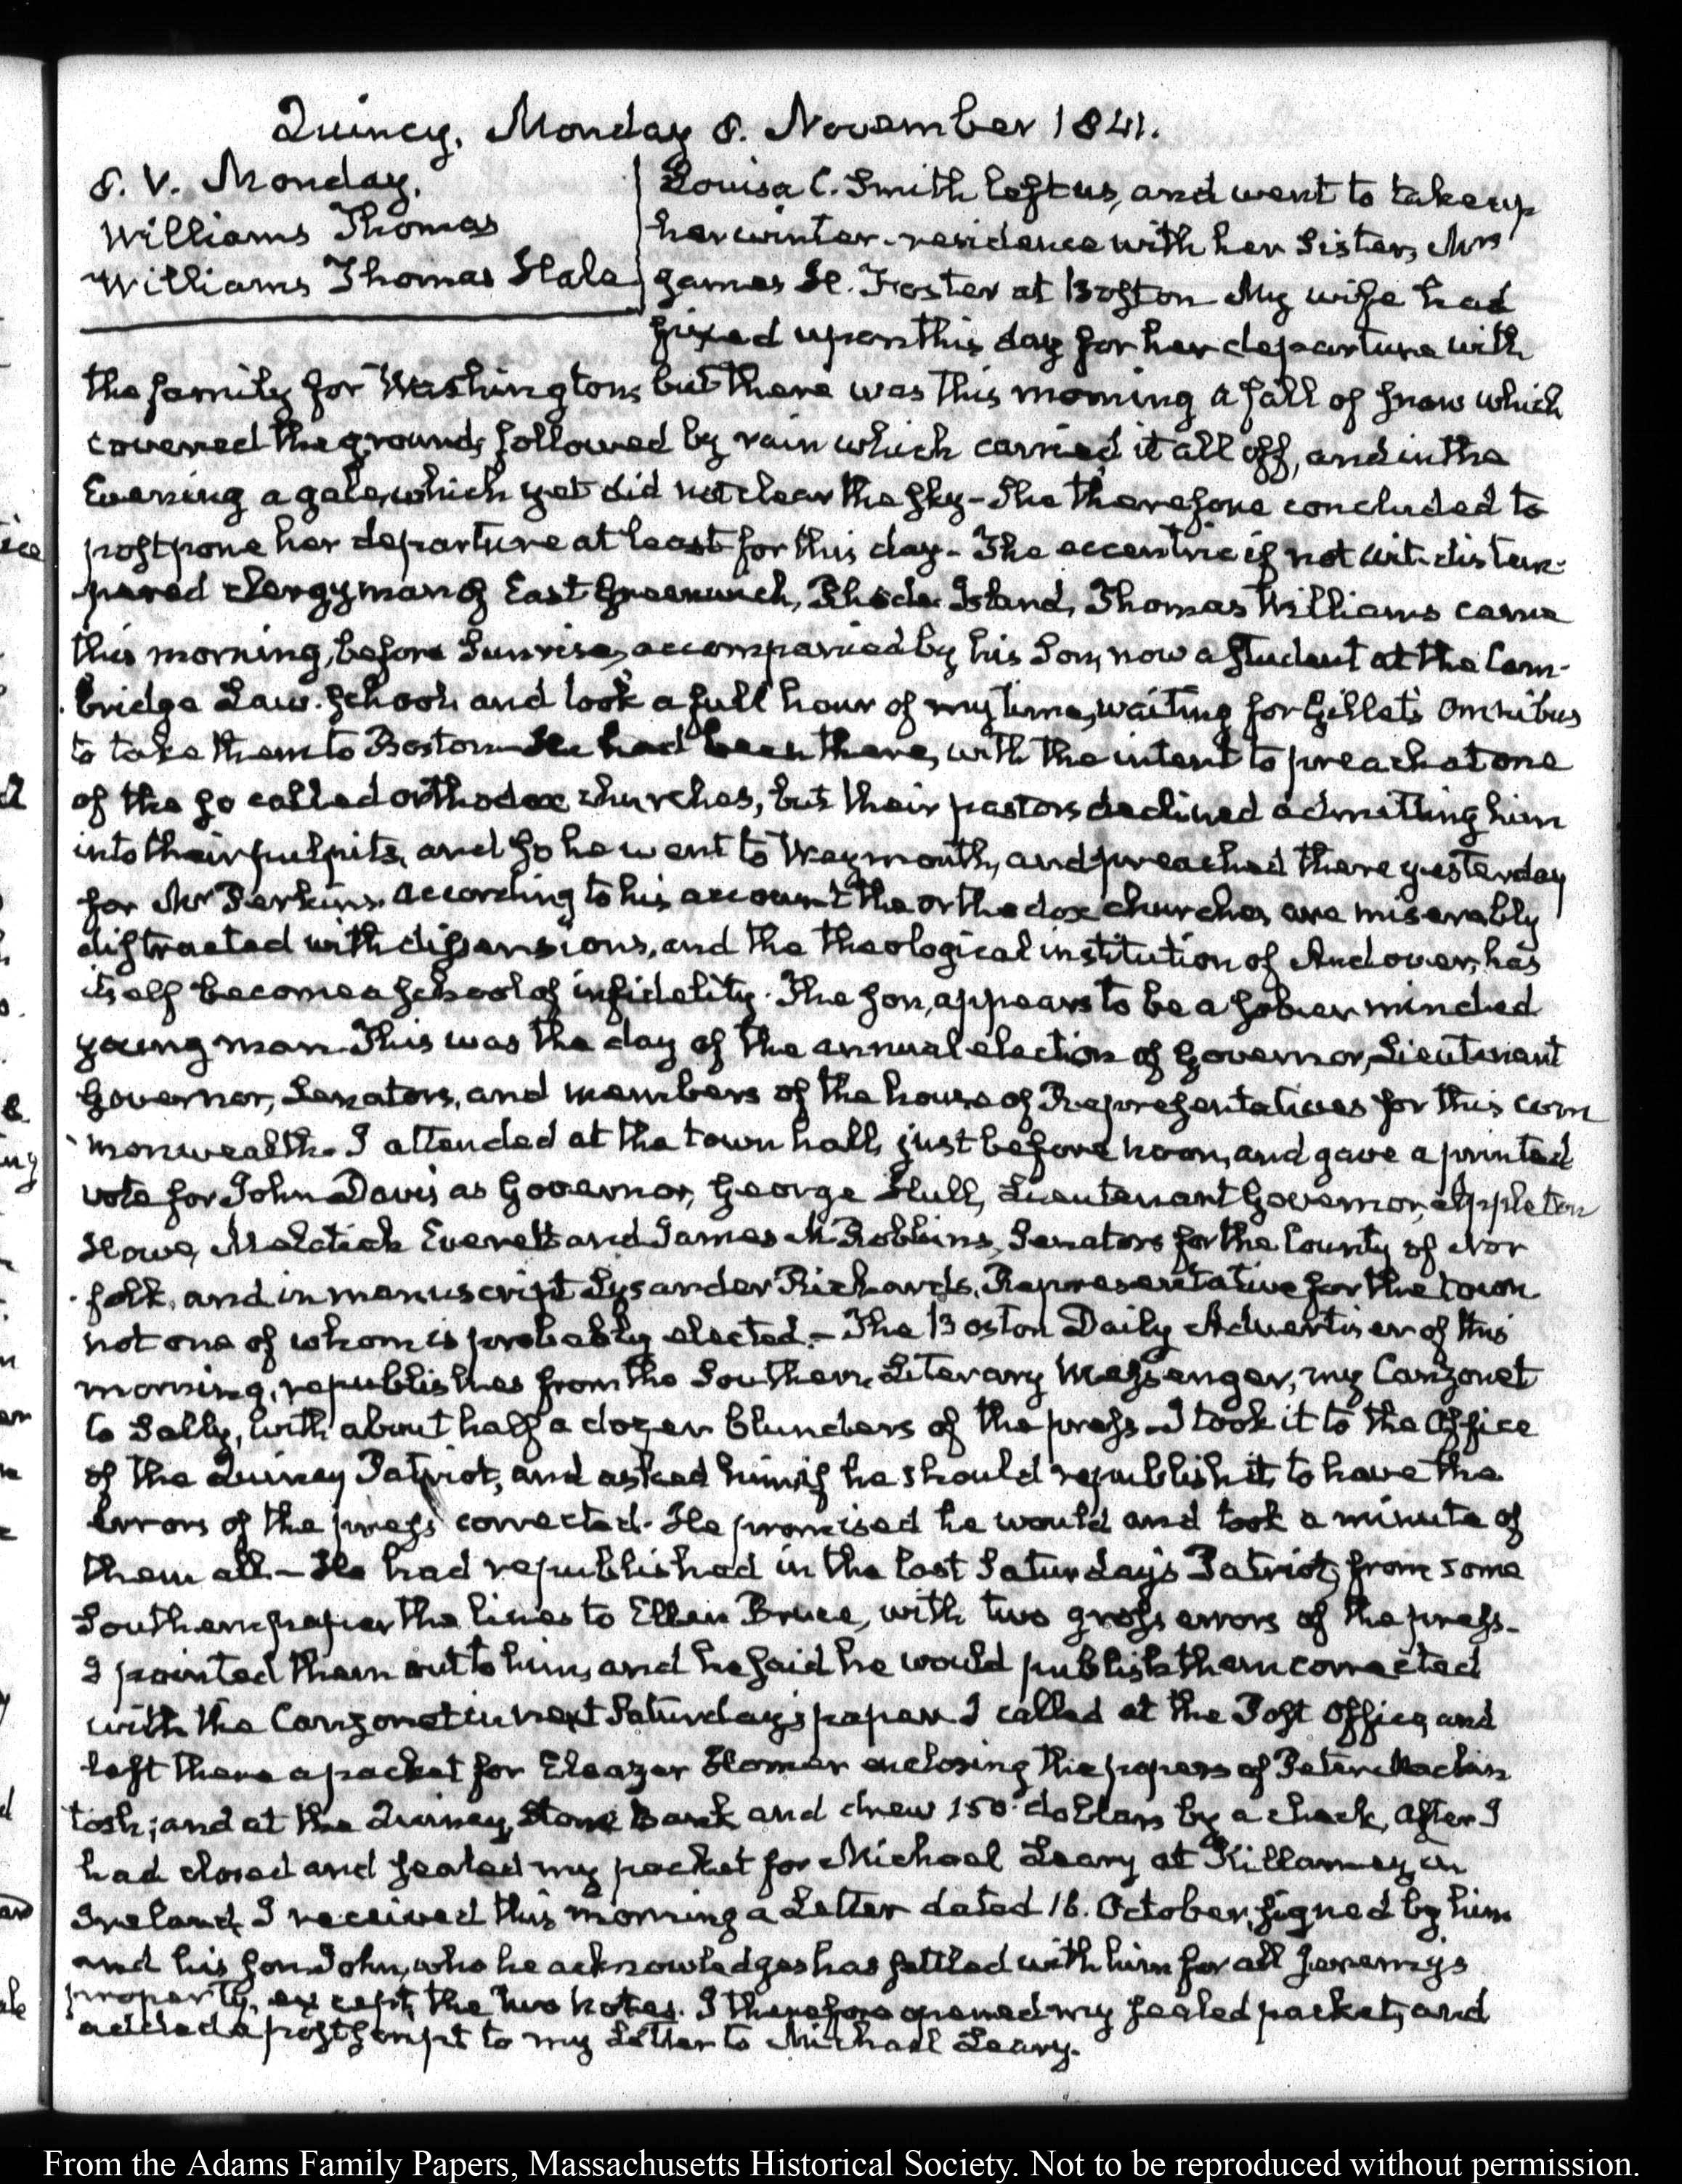 Quincy, Monday 8. November 1841.
8. V. Monday.
Williams Thomas
Williams Thomas Hale
Louisa C. Smith left us, and went to take up
her winter-residence with her Sister, Mrs
James H. Foster at Boston My wife had
fixed upon this day for her departure with
the family for Washington, but there was this morning a fall of snow which
covered the ground, followed by rain which carried it all off, and in the
Evening a gale, which yet did not clear the sky - She therefore concluded to
postpone her departure at least for this day - The eccentric if not wit-distem-
pered clergyman of East-Greenwich, Rhode Island, Thomas Williams came
this morning, before Sunrise, accompanied by his Son, now a student at the Cam-
bridge Law-School, and took a full hour of my time, waiting for Gillet's Omnibus
to take them to Boston He had been there, with the intent to preach at one
of the so called orthodox churches, but their pastors declined admitting him
into their pulpits, and so he went to Weymouth, and preached there yesterday
for Mr Perkins. According to his account the orthodox churches are miserably
distracted with dissensions, and the theological institution of Andover, has
itself become a school of infidelity. The son, appears to be a sober minded
young man. This was the day of the annual election of Governor, Lieutenant
Governor, Senators, and members of the house of Representatives for this com
monwealth. I attended at the town hall, just before noon, and gave a printed
vote for John Davis as Governor, George Hull, Lieutenant Governor, Appleton
Howe, Melatiah Everett and James M Robbins, Senators for the County of Nor
folk, and in manuscript Lysander Richards, Representative for the town
not one of whom is probably elected. - The Boston Daily Advertiser of this
morning, republishes from the Southern Literary Messenger, my Canzonet
to Sally, with about half a dozen blunders of the press - I took it to the Office
of the Quincy Patriot, and asked him, if he should republish it, to have the
errors of the press corrected. He promised he would and took a minute of
them all - He had republished in the last Saturday's Patriot, from some
Southern paper the lines to Ellen Bruce, with two gross errors of the press -
I pointed them out to him, and he said he would publish them corrected
with the Canzonet in next Saturday's paper. I called at the Post Office, and
left there a packet for Eleazer Homer enclosing the papers of Peter Mackin
tosh; and at the Quincy, Stone Bank and drew 150 dollars by a check, After I
had closed and sealed my packet for Michael Leary at Killarney in
Ireland, I received this morning a Letter dated 16. October, signed by him
and his son John, who he acknowledges has settled with him for all Jeremy's
property, except, the two notes. I therefore opened my sealed packet, and
added a postscript to my Letter to Michael Leary.
From the Adams Family Papers, Massachusetts Historical Society. Not to be reproduced without permission.